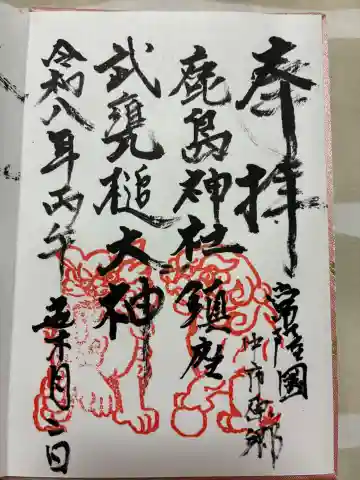 奉拝
常陸國
鹿島神社鎮座
武甕槌大神
令和八年丙午
五月二日